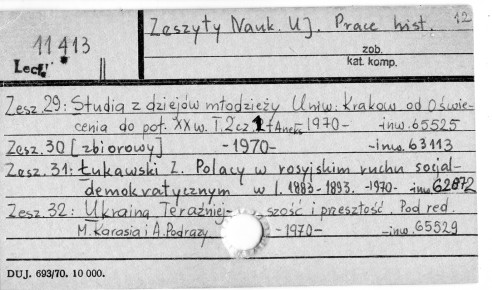 Zeszyty Nauk. UJ. Prace hist. 12
11413
Lect.
zob.
kat. komp.
Zesz. 29: Studia z dziejów młodzieży Uniw. Krakow od Oświe-
cenia do poł. XX w. T. 2 cz. 1 + Aneks -1970- -inw. 65525
Zesz. 30 [zbiorowy] -1970- -inw. 63113
Zesz. 31: Łukawski Z. Polacy w rosyjskim ruchu socjal-
demokratycznym w l. 1883-1893. -1970- inw 62872
Zesz. 32: Ukraina Teraźniej- szość i przeszłość. Pod red.
M. Karasia i A. Podrazy -1970- -inw. 65529
DUJ. 693/70. 10 000.